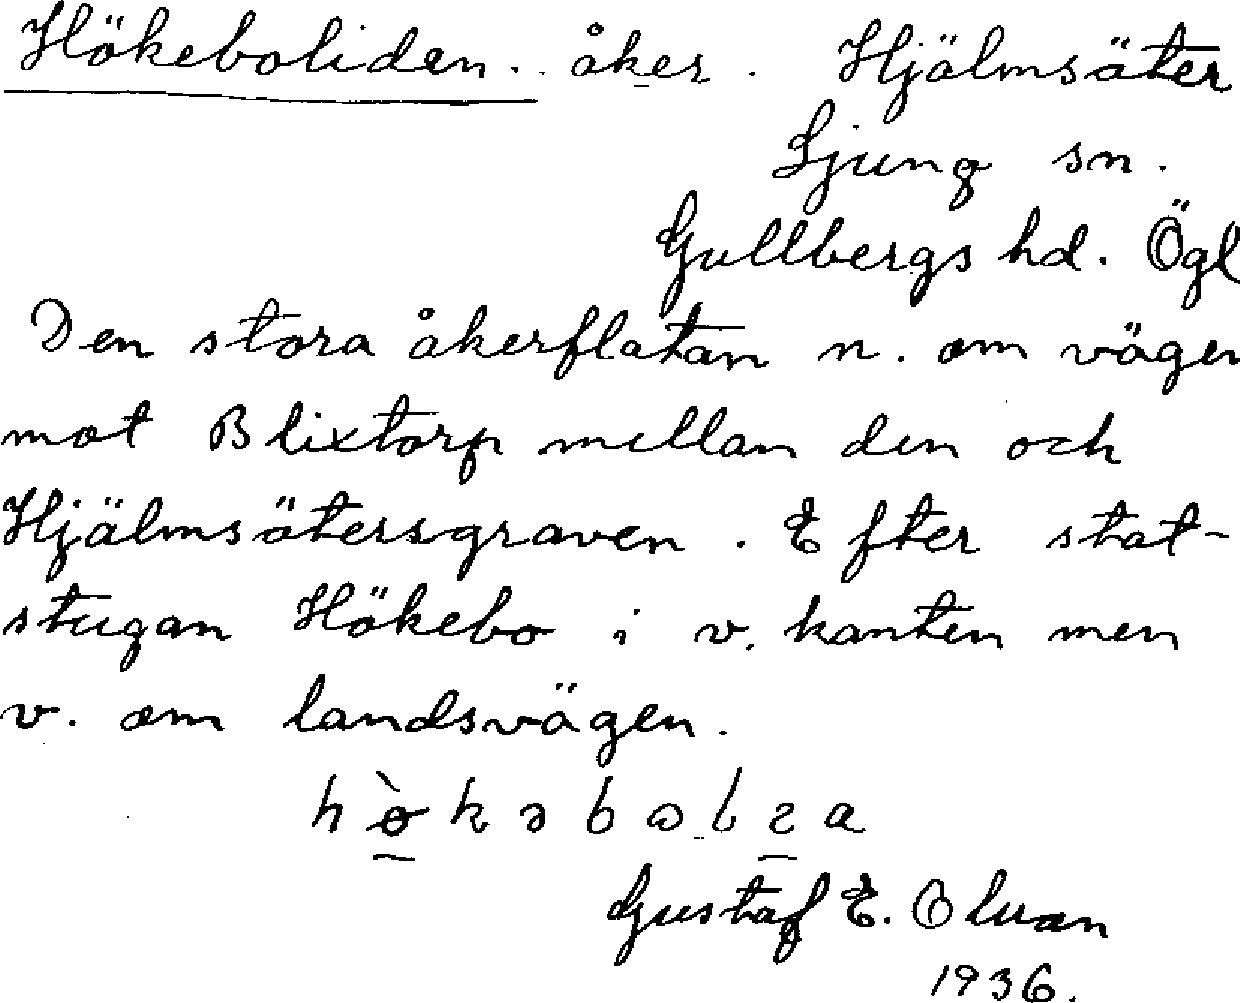 Hökeboliden. åker. Hjälmsäter
Ljung sn.
Gullbergs hd. Ögl
Den stora åkerflatan n. om vägen
mot Blixtorp mellan den och
Hjälmsätersgraven. Efter stat-
stugan Hökebo i v. kanten men
v. om landsvägen.
Gustaf E.
1936.